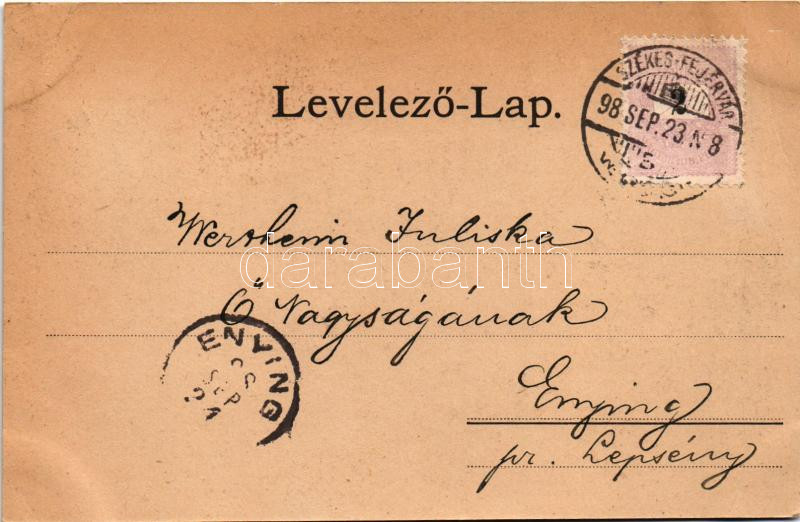 Levelező-Lap.
SZÉKES-FEJÉRVÁR
2
98 SEP. 23. N 8
Wertheim Juliska
Ő Nagyságának
darabanth
ENYING
98
SEP
24
Enying
pr. Lepsény